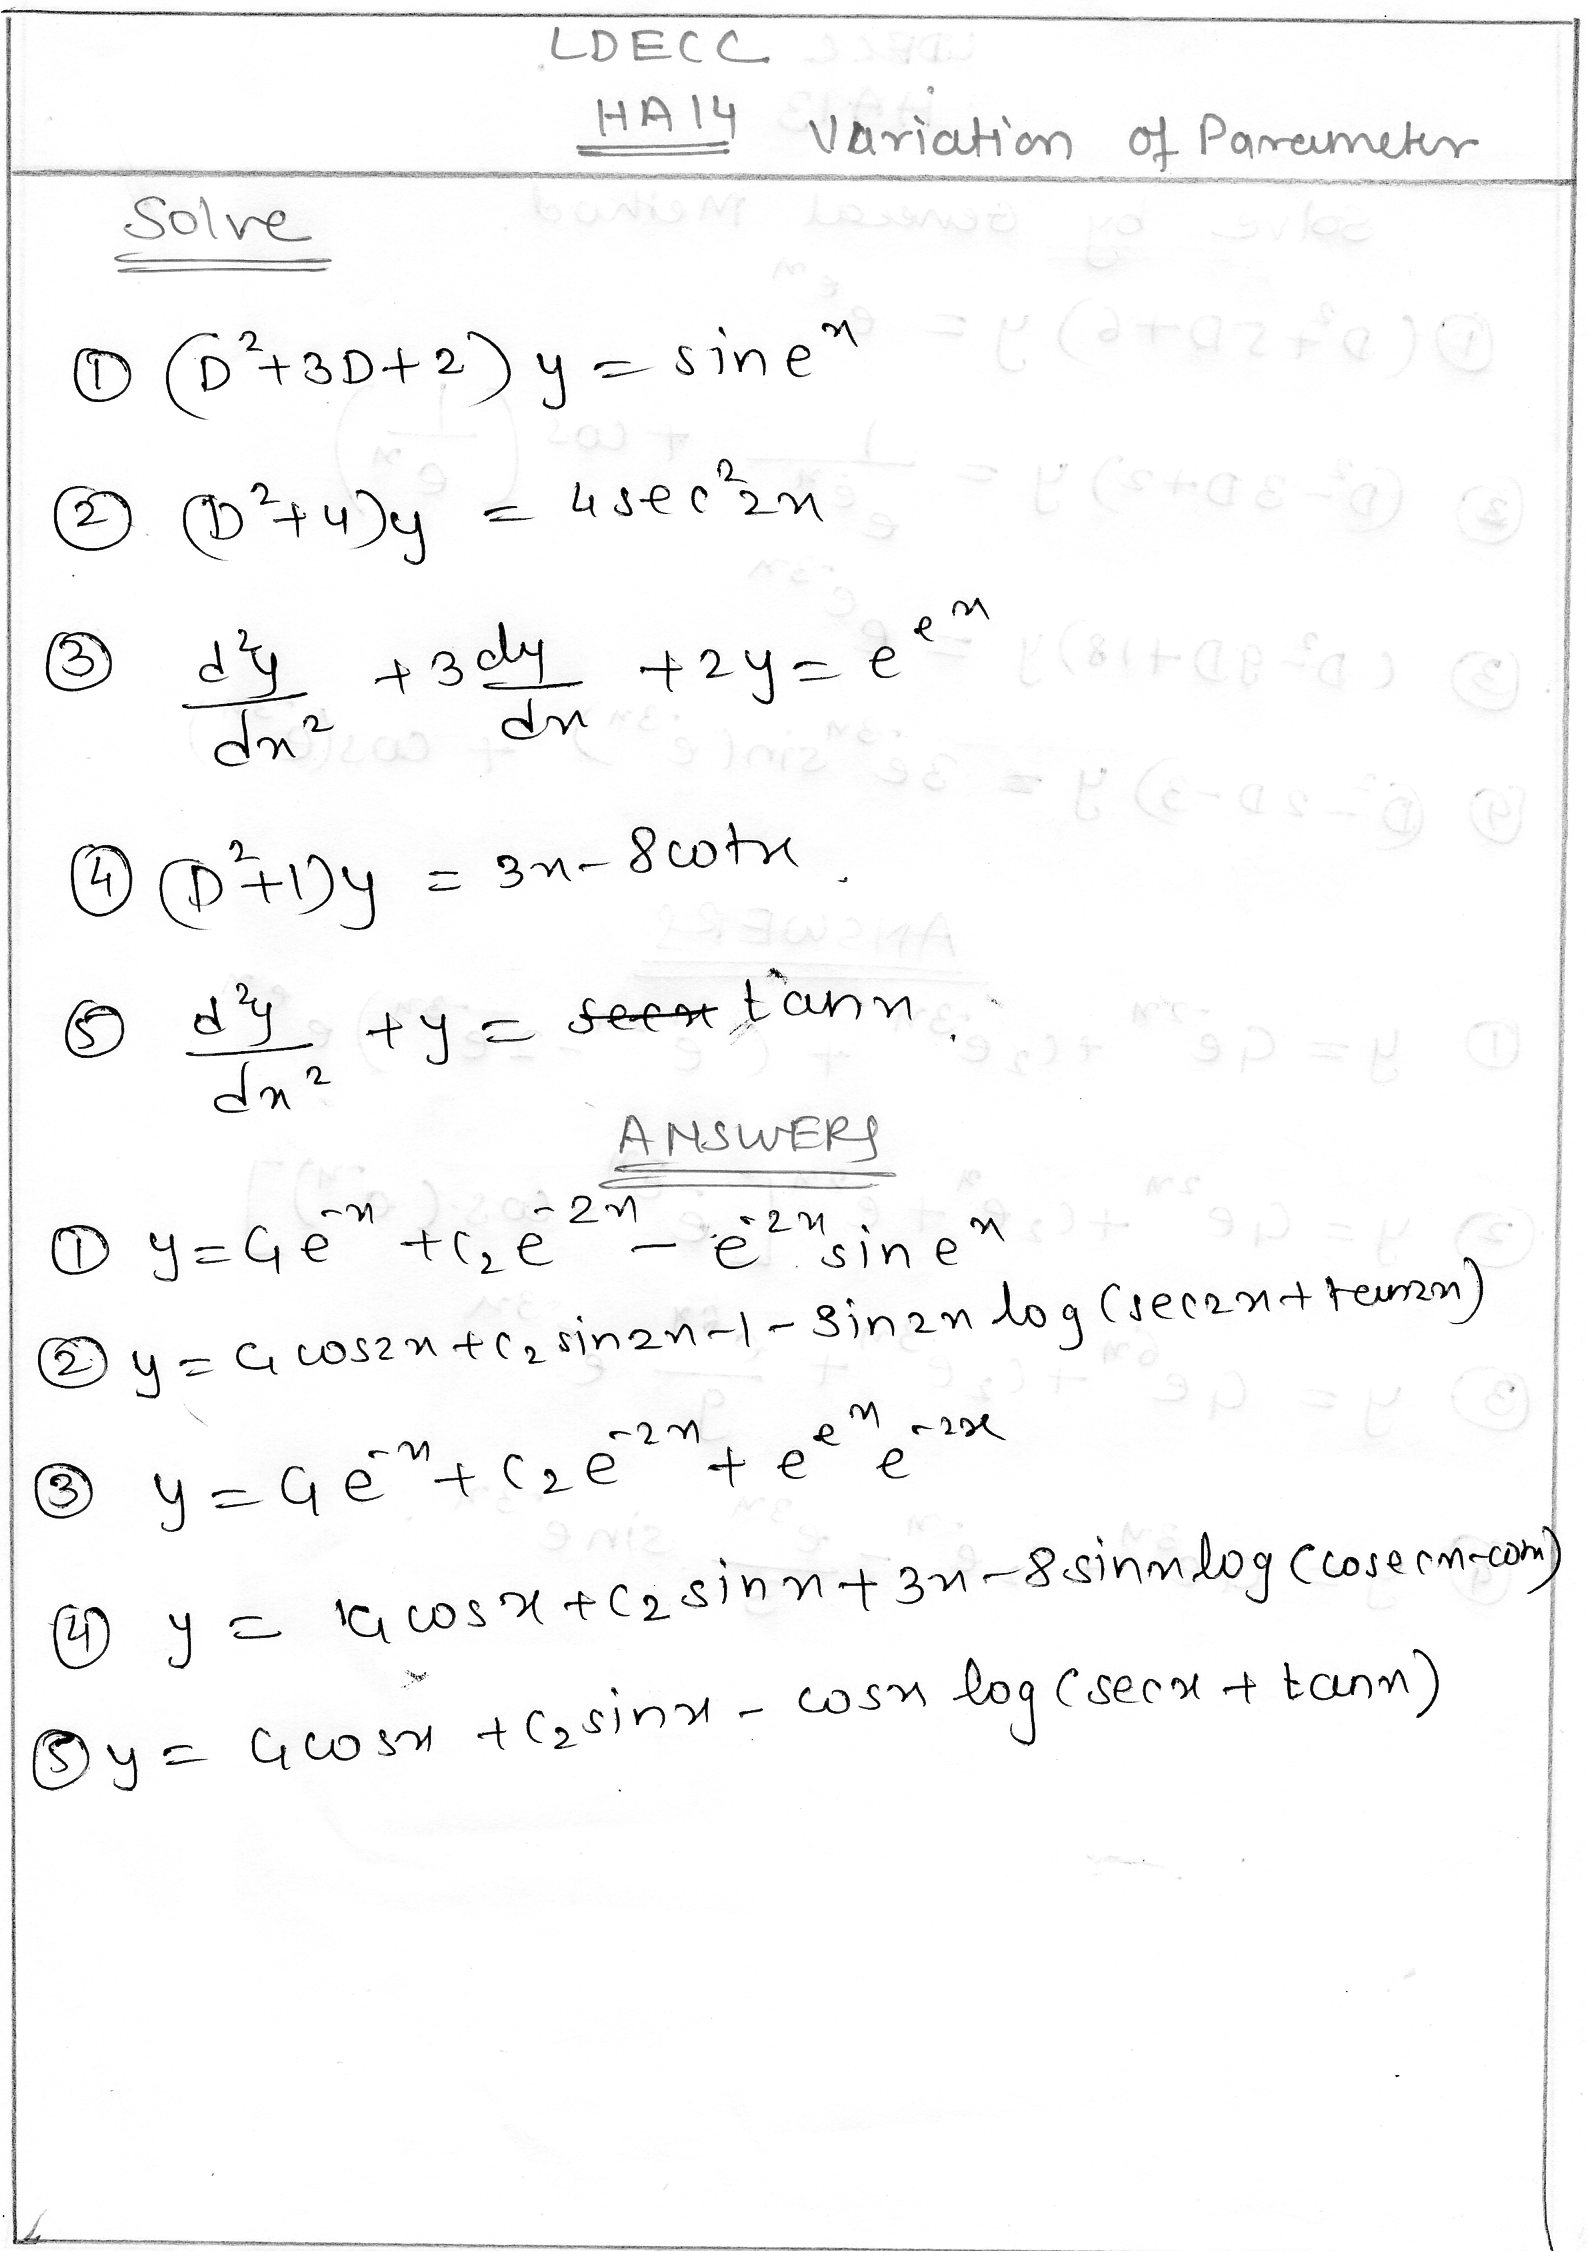 LDECC
HA14 Variation of Parameter
Solve
① (D²+3D+2) y = sin eˣ
② (D²+4)y = 4sec²2x
③ d²y/dx² + 3 dy/dx + 2y = e^eˣ
④ (D²+1)y = 3x - 8cotx.
⑤ d²y/dx² + y = secx tanx.
ANSWERS
① y = C₁e⁻ˣ + C₂e⁻²ˣ - e⁻²ˣ sin eˣ
② y = C₁cos2x + C₂sin2x - 1 - sin2x log(sec2x + tan2x)
③ y = C₁e⁻ˣ + C₂e⁻²ˣ + e^eˣ e⁻²ˣ
④ y = C₁cosx + C₂sinx + 3x - 8sinx log(cosecx-cotx)
⑤ y = C₁cosx + C₂sinx - cosx log(secx + tanx)